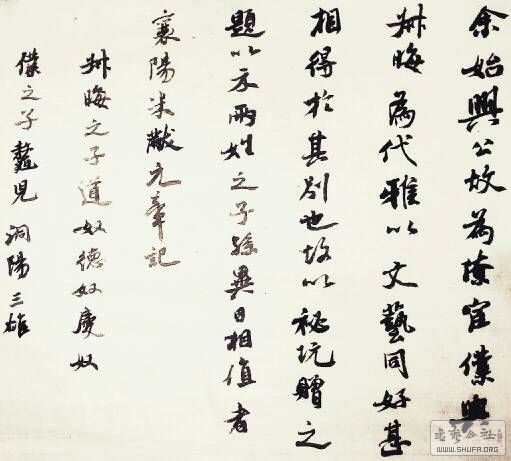 余始興公故為僚宦僕與
叔晦為代雅以文藝同好甚
相得於其別也故以秘玩贈之
題以示兩姓之子孫異日相值者
襄陽米黻元章記
叔晦之子道奴德奴慶奴
僕之子鼇兒 洞陽三雄
书艺公社
WWW.SHUFA.ORG